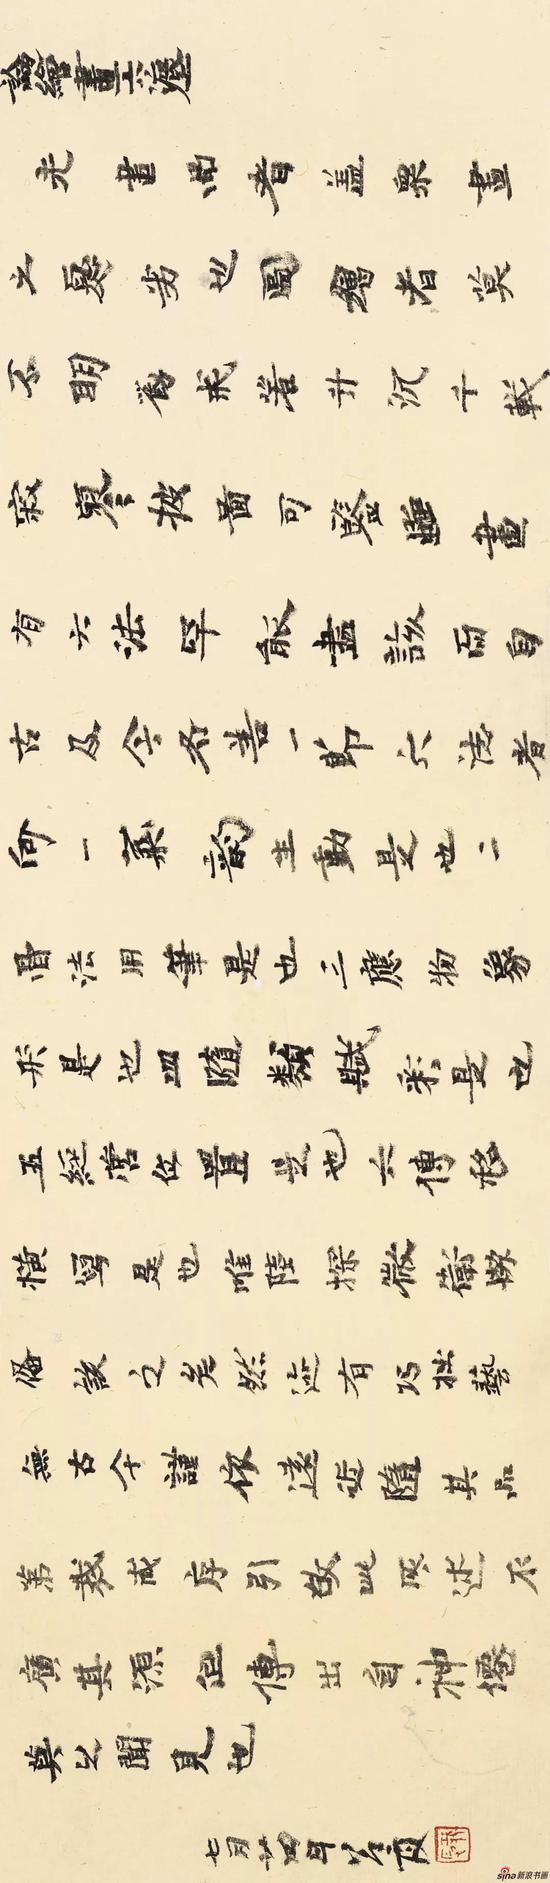 論繪畫六法
夫畫品者蓋眾畫
之優劣也圖繪者莫
不明勸戒著升沉千載
寂寥披圖可鑒雖畫
有六法罕能盡該而自
古及今各善一節六法者
何一氣韻生動是也二
骨法用筆是也三應物象
形是也四隨類賦彩是也
五經營位置是也六傳移
模寫是也唯陸探微衛協
備該之矣然迹有巧拙藝
無古今謹依遠近隨其品
第裁成序引故此所述不
廣其源但傳出自神僊
莫之聞見也
七月
sina新浪书画